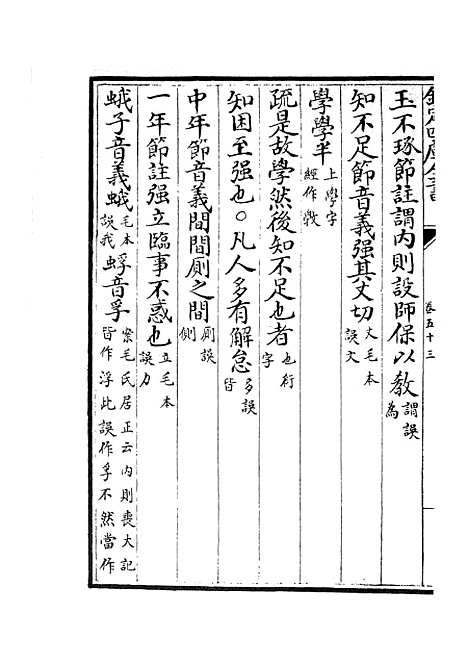 欽定四庫全書
卷五十三
玉不琢節註謂内則設師保以教謂誤為
知不足節音義强其丈切丈毛本誤文
學學半上學字經作斆
疏是故學然後知不足也者也衍字
知困至强也○凡人多有解怠多誤皆
中年節音義間間厠之間厠誤側
一年節註强立臨事不惑也立毛本誤力
蛾子音義蛾毛本誤我蜉音孚案毛氏居正云内則喪大記皆作浮此誤作孚不然當作